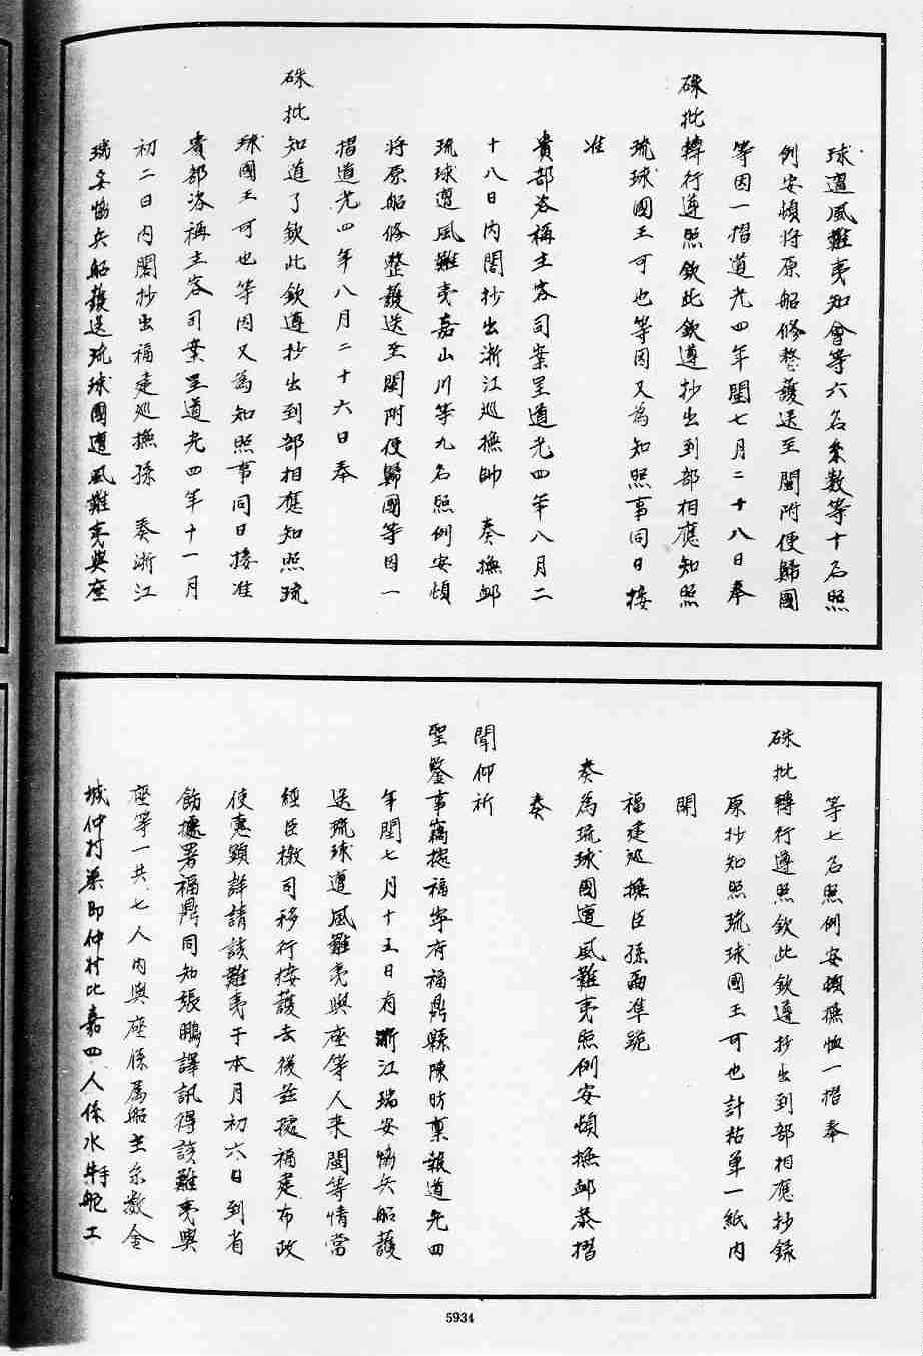 球遭風難夷知會等六名系數等十名照
例安頓將原船修整護送至閩附便歸國
等因一摺道光四年閏七月二十八日奉
硃批轉行遵照欽此欽遵抄出到部相應知照
琉球國王可也等因又為知照事同日接
准
貴部咨稱主客司案呈道光四年八月二
十八日內閣抄出浙江巡撫帥 奏撫卹
琉球遭風難夷嘉山川等九名照例安頓
將原船修整護送至閩附便歸國等因一
摺道光四年八月二十六日奉
硃批知道了欽此欽遵抄出到部相應知照琉
球國王可也等因又為知照事同日接准
貴部咨稱主客司案呈道光四年十一月
初二日內閣抄出福建巡撫孫 奏浙江
瑞安協兵船護送琉球國遭風難夷與座
等七名照例安頓撫恤一摺奉
硃批轉行遵照欽此欽遵抄出到部相應抄錄
原抄知照琉球國王可也計粘單一紙內
開
福建巡撫臣孫爾準跪
奏為琉球國遭風難夷照例安頓撫卹恭摺
奏
聞仰祈
聖鑒事竊據福寧府福鼎縣陳昉稟報道光四
年閏七月十五日有浙江瑞安協兵船護
送琉球遭風難夷與座等人來閩等情當
經臣檄司移行按護去後茲據福建布政
使惠顯詳請該難夷于本月初六日到省
飭據署福鼎同知張鵬譯訊得該難夷與
座等一共七人內與座係馬船主佘數金
城仲村渠即仲村比嘉四人係水特舵工
5934